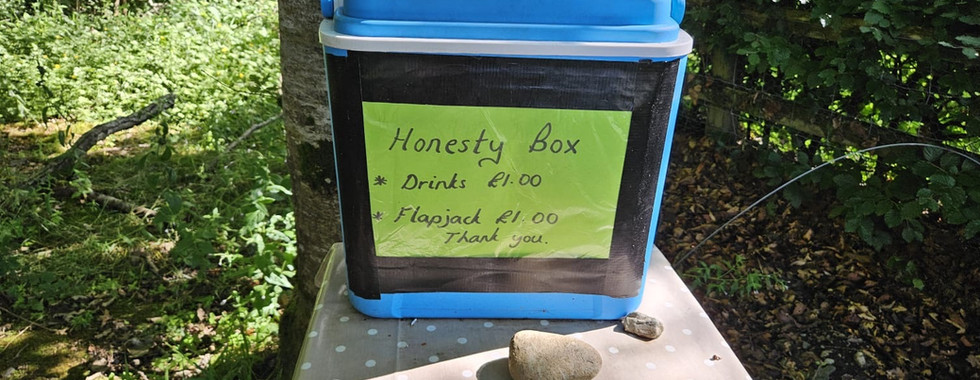 Honesty Box
* Drinks £1.00
* Flapjack £1.00
Thank you.